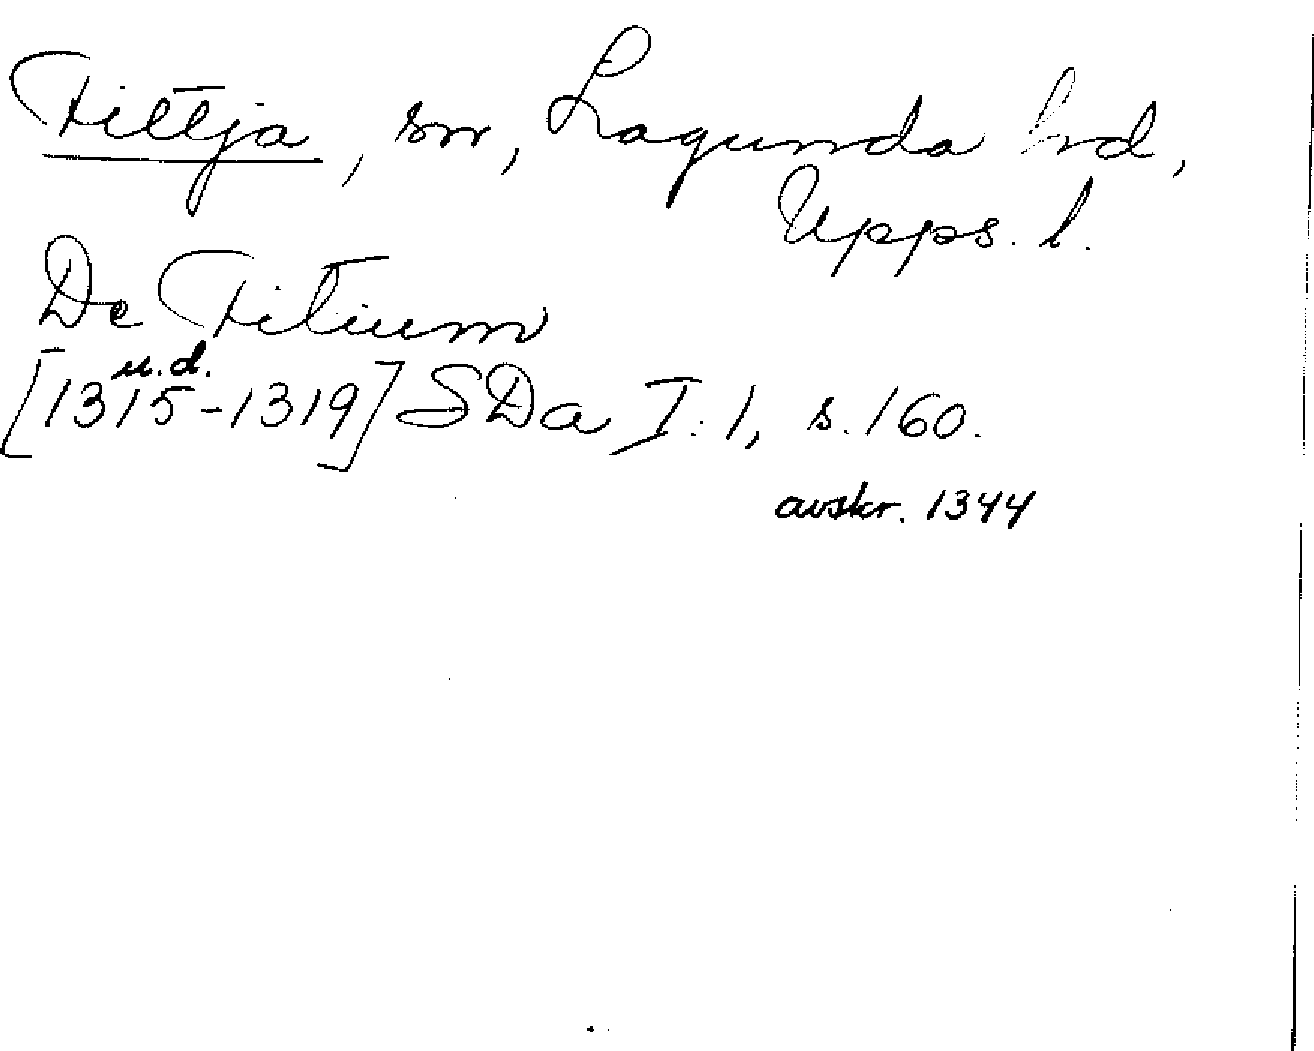 Fittja, sn, Lagunda hd,
Upps. l.
De Fitium
u.d.
[1315-1319] SDa I:1, s. 160.
avskr. 1344